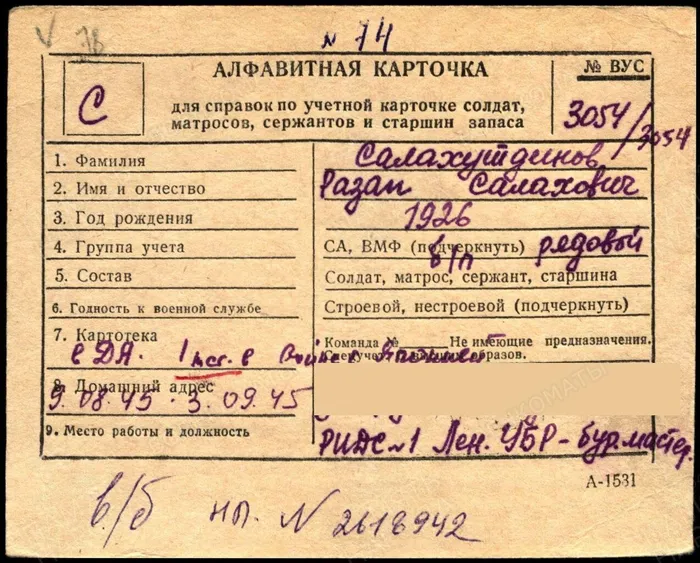 78
№ 74
АЛФАВИТНАЯ КАРТОЧКА
№ ВУС
С
для справок по учетной карточке солдат,
матросов, сержантов и старшин запаса
3054/3054
1. Фамилия Салахутдинов
2. Имя и отчество Разап Салахович
3. Год рождения 1926
4. Группа учета СА, ВМФ (подчеркнуть) рядовый
в/п
5. Состав Солдат, матрос, сержант, старшина
6. Годность к военной службе Строевой, нестроевой (подчеркнуть)
7. Картотека Команда № Не имеющие предназначения.
в ДА. 1 в Войне с Японией
8. Домашний адрес
9.08.45 - 3.09.45
9. Место работы и должность РИДС №1 Лен. УБР - бур.мастер.
А-1531
в/б нп. N 2618942